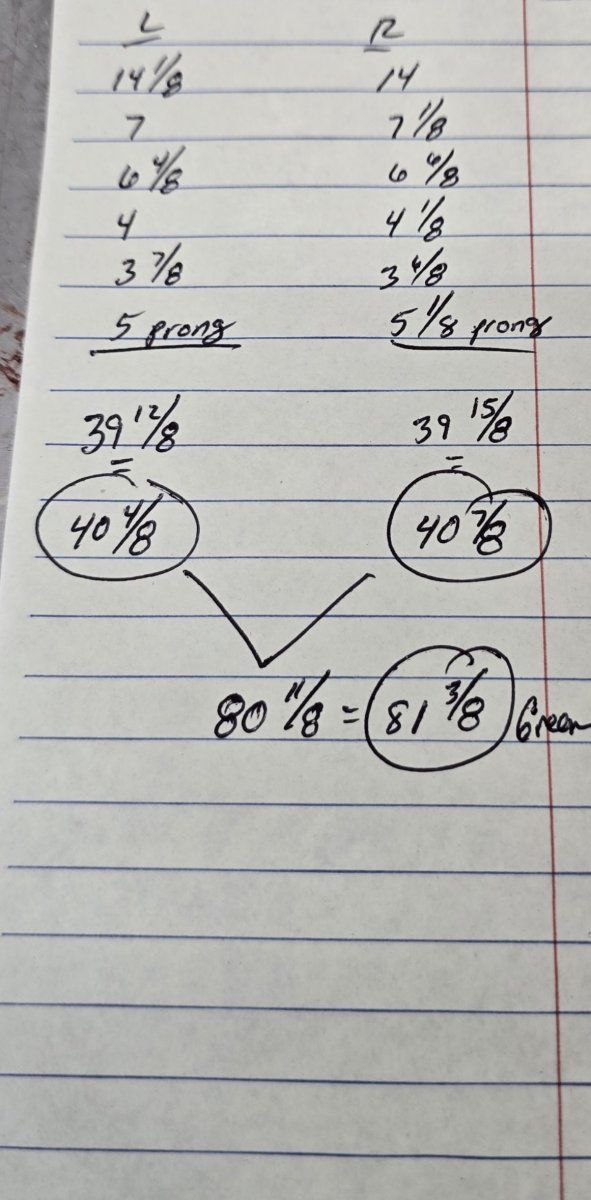 L R
14 1/8 14
7 7 1/8
6 4/8 6 6/8
4 4 1/8
3 7/8 3 6/8
5 prong 5 1/8 prong
39 12/8 39 15/8
= =
40 4/8 40 7/8
80 11/8 = 81 3/8 Green